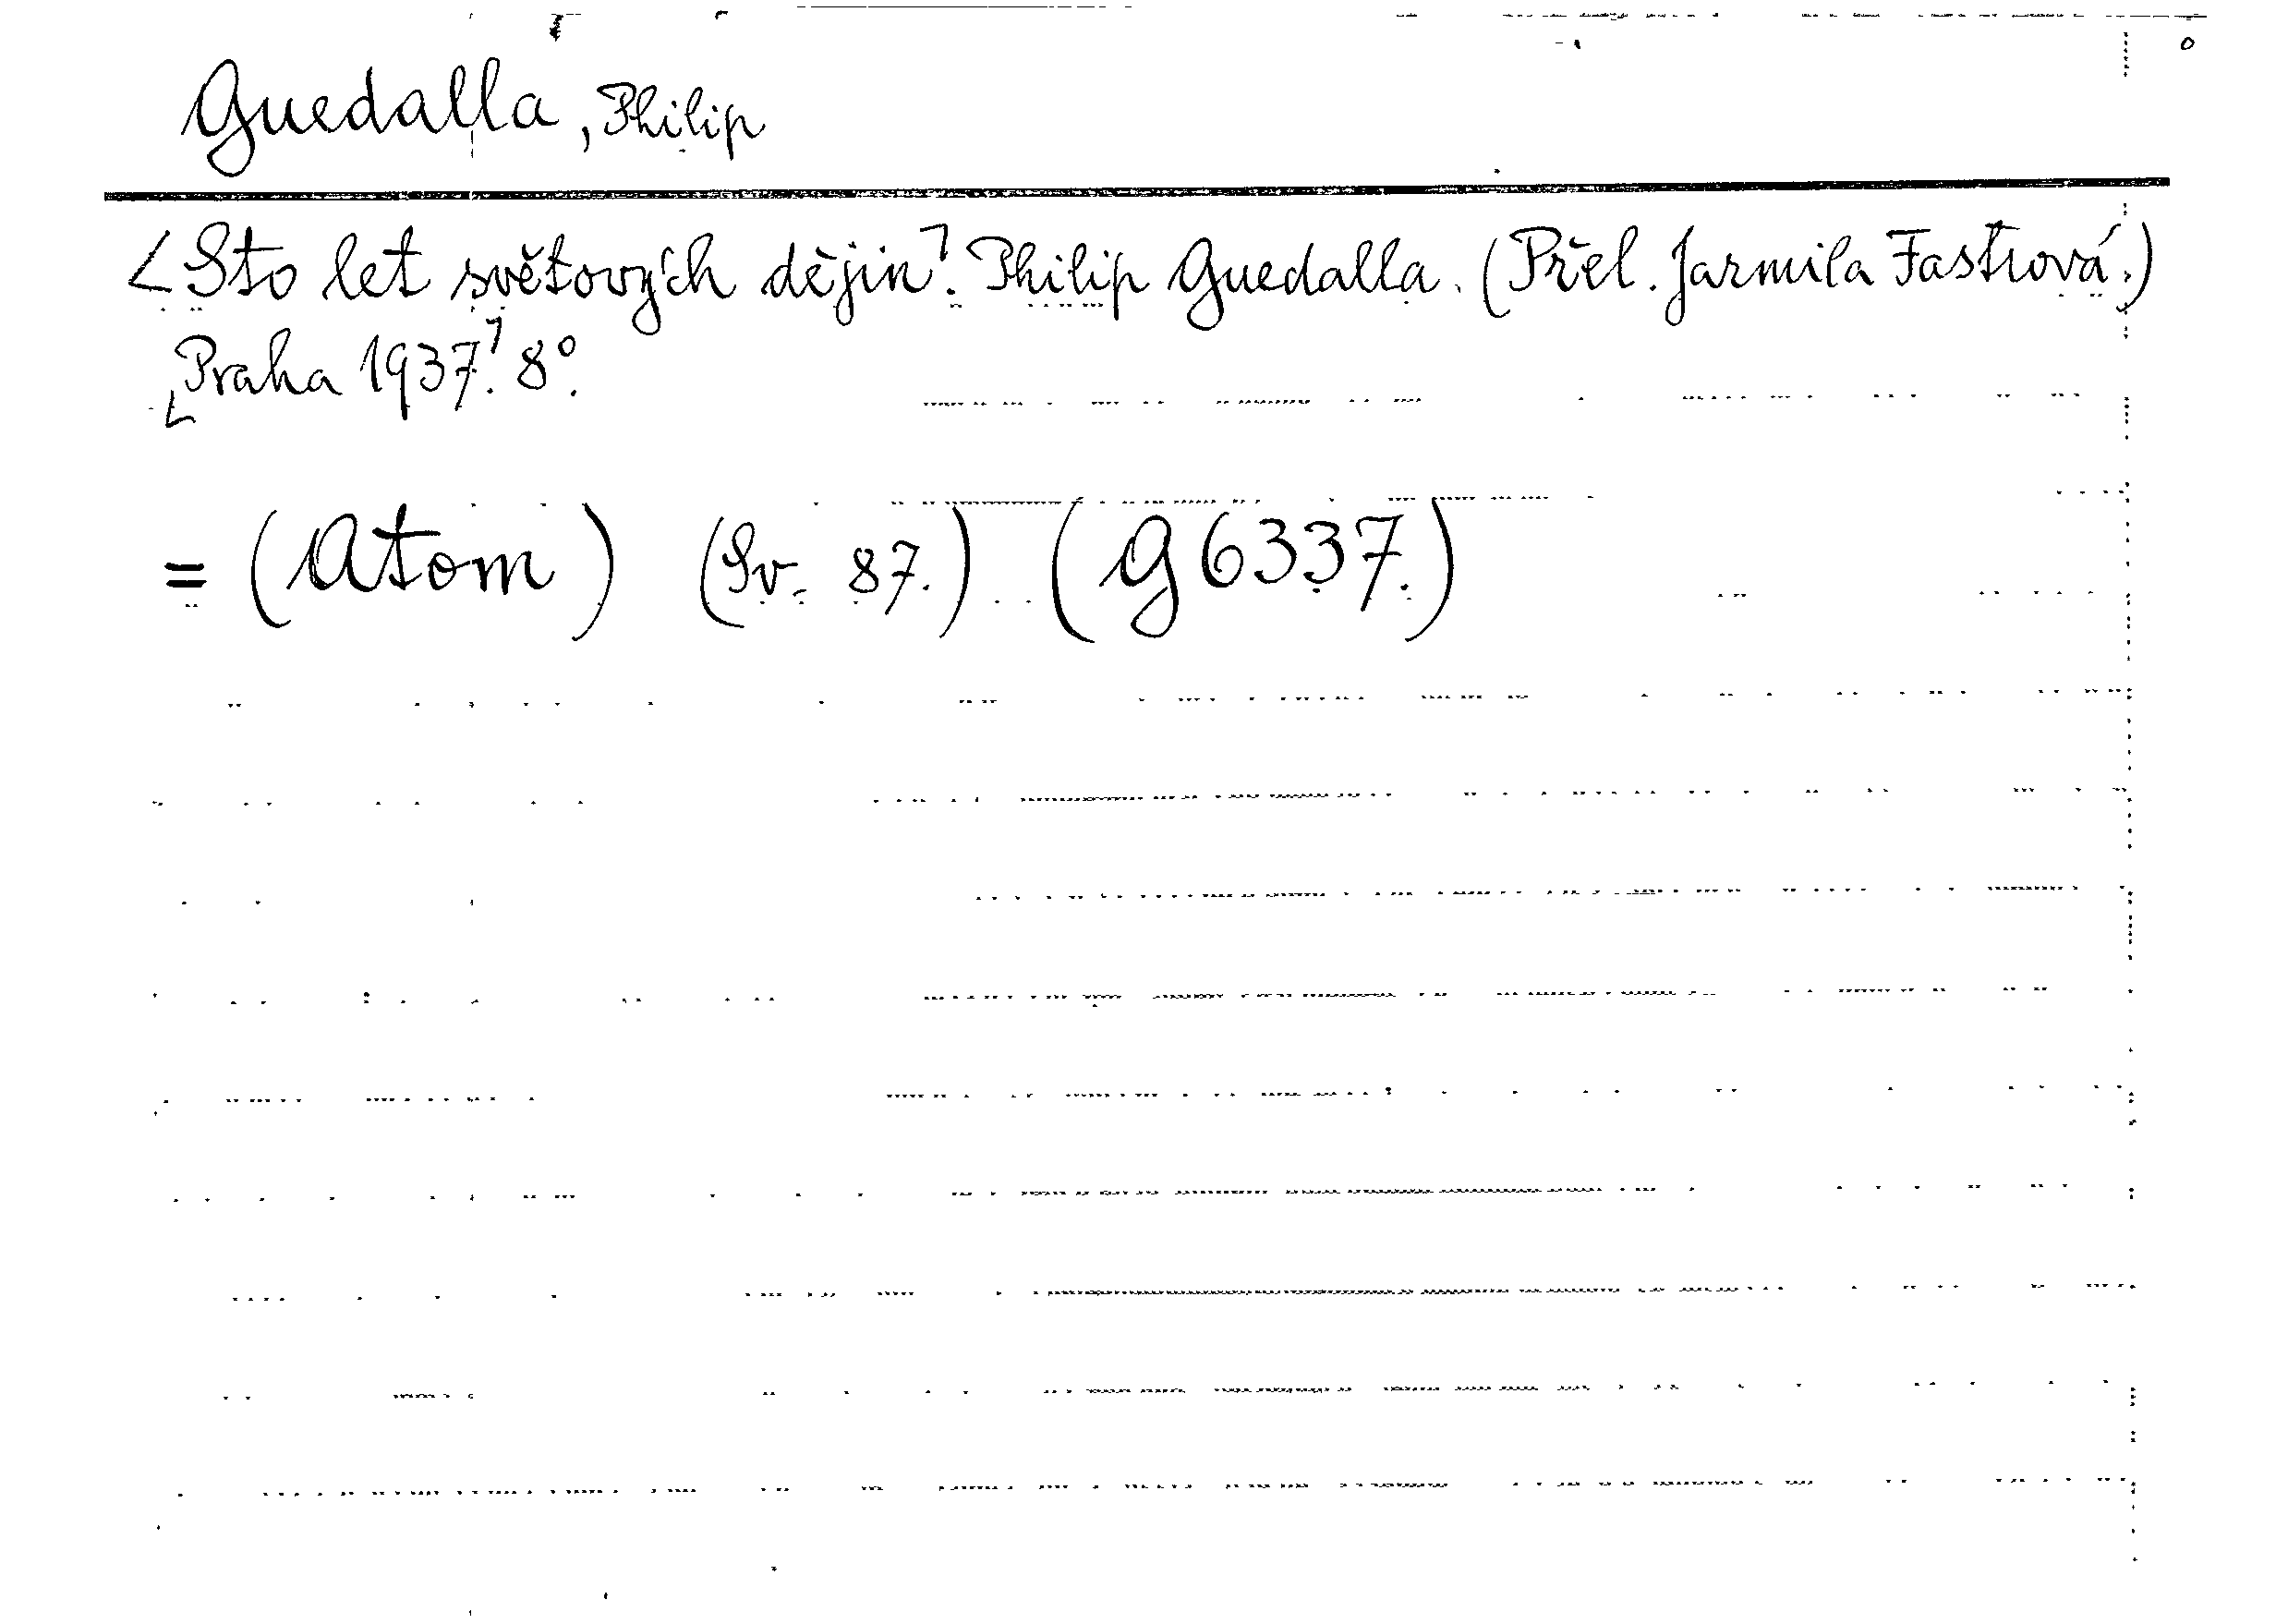 Guedalla, Philip
<Sto let světových dějin⌝. Philip Guedalla. (Přel. Jarmila Fastrová.)
⌞Praha 1937⌝. 8°.
= (Atom) (Sv. 87.) (G 6337.)